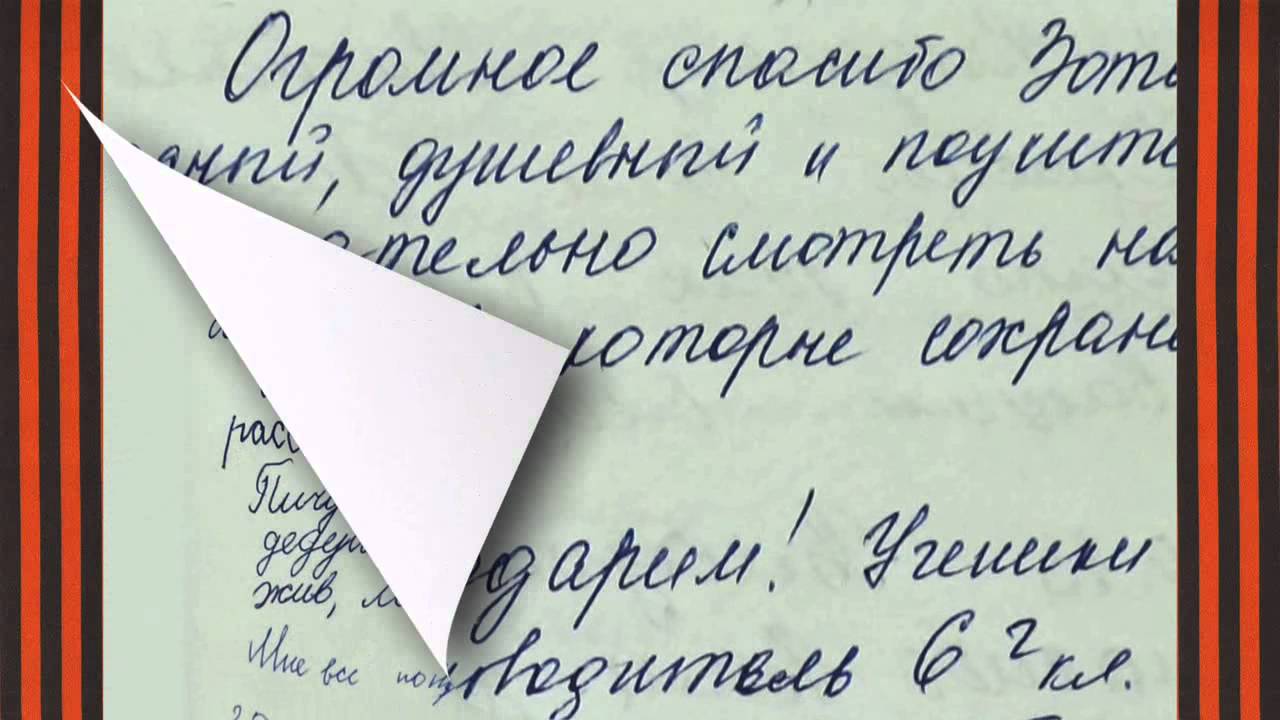 Огромное спасибо Зоте
аный, душевный и поучите
ательно смотреть на
которые сохрани
расс
Пичу
дедуш
жив, м
дарим! Ученики
Мне все пон
водитель 6 г кл.